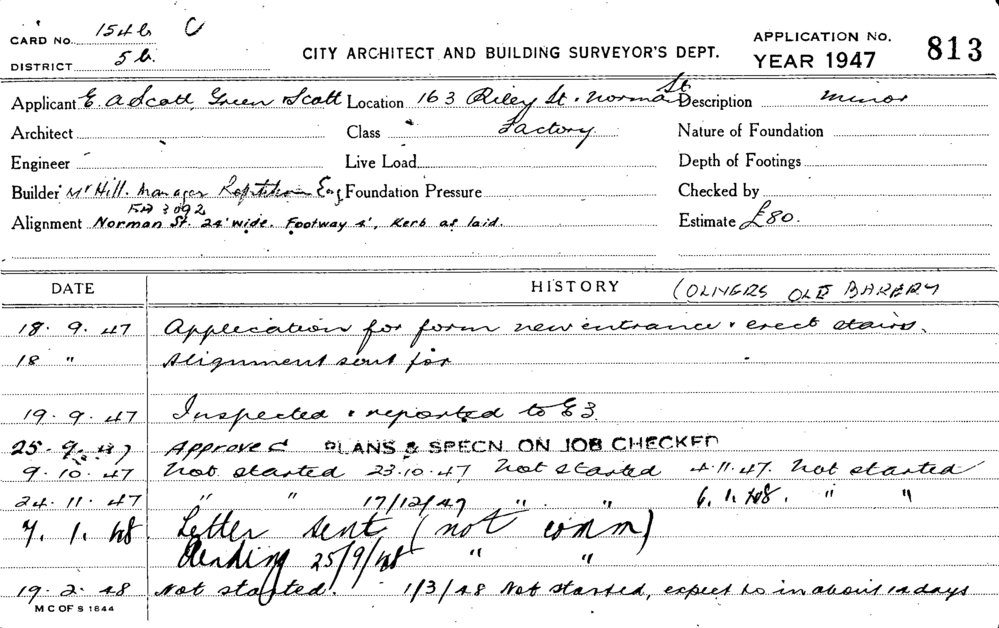 CARD No. 154b C
DISTRICT 5b.
CITY ARCHITECT AND BUILDING SURVEYOR'S DEPT.
APPLICATION No. 813
YEAR 1947
Applicant E. A Scott, Green & Scott Location 163 Riley St. Norman St Description minor
Architect Class Factory. Nature of Foundation
Engineer - Live Load Depth of Footings
Builder Mr Hill. Manager Repetition Eng Foundation Pressure Checked by
FA 3092
Alignment Norman St. 24' wide. Footway 4', Kerb as laid. Estimate £80.
DATE HISTORY (OLIVERS OLD BAKERY
18. 9. 47 Application for form new entrance & erect stairs.
18 " Alignment sent for
19. 9. 47 Inspected & reported to E3
25. 9. 47 Approved PLANS & SPECN. ON JOB CHECKED
9. 10. 47 Not started 23.10.47 Not started 4.11.47. Not started
24. 11. 47 " " 17/12/47 " " 6. 1. 48. " "
7. 1. 48 Letter sent (not comm)
Pending 25/9/48 " "
19. 2. 48 Not started. 1/3/48 Not started, expect to in about 14 days
M C OF S 1644